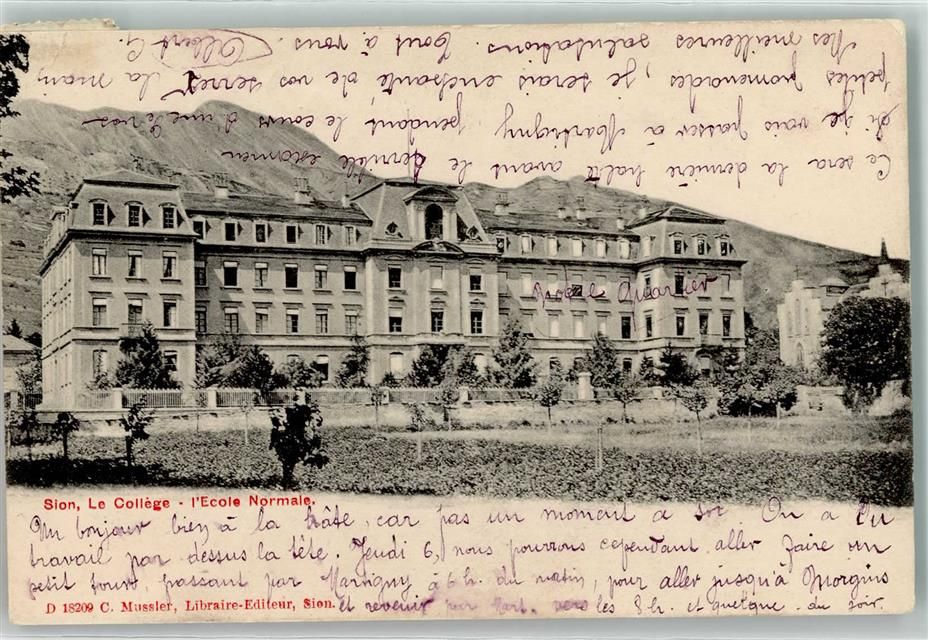 Sion, Le Collège - l'Ecole Normale.
Un bonjour bien à la hâte, car pas un moment à soi. On a du
travail par dessus la tête. Jeudi 6, nous pourrons cependant aller faire un
petit tour, passant par Martigny à 6 h. du matin, pour aller jusqu'à Morgins
D 18209 C. Mussler, Libraire-Editeur, Sion. et revenir par vers les 8 h. et quelque du soir.
Ce sera la dernière halte avant le terrible examen
si je vais passer à Martigny pendant le cours d'une de vos
petites promenades, je serais enchanté de vos serrer la main
Mes meilleures salutations. Tout à vous. Albert G.
Quartier